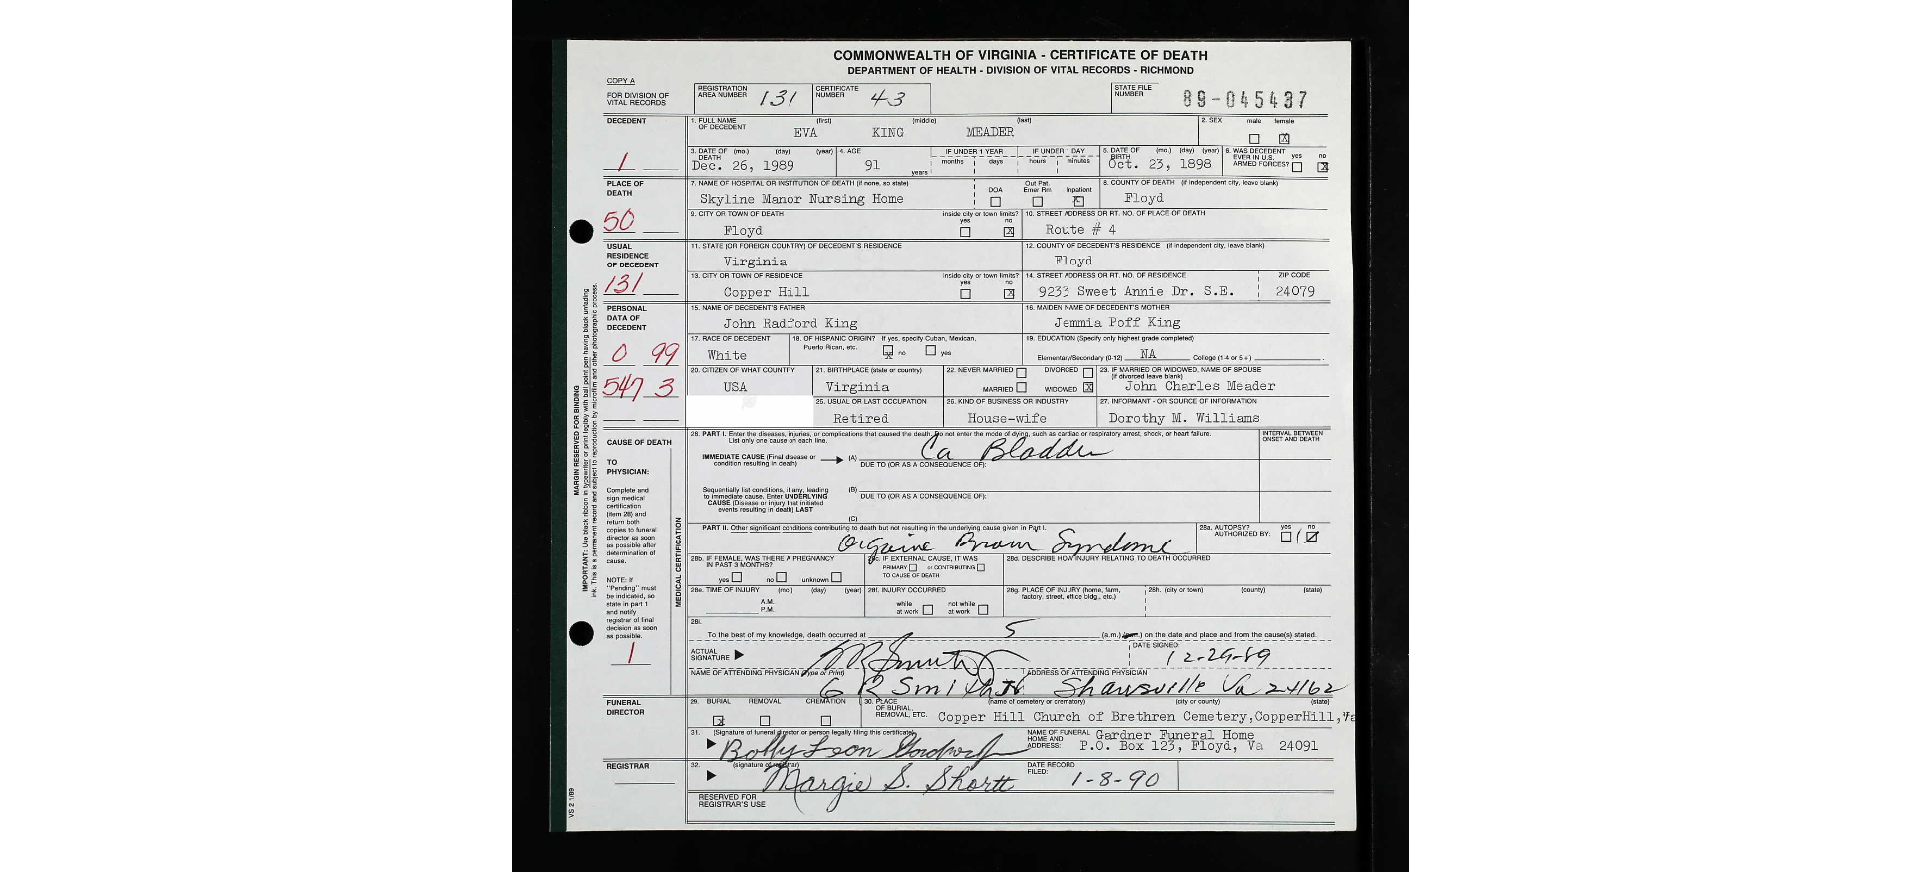 COMMONWEALTH OF VIRGINIA - CERTIFICATE OF DEATH
DEPARTMENT OF HEALTH - DIVISION OF VITAL RECORDS - RICHMOND
COPY A
FOR DIVISION OF VITAL RECORDS
REGISTRATION AREA NUMBER 131
CERTIFICATE NUMBER 43
STATE FILE NUMBER 89-045437
DECEDENT
1
1. FULL NAME OF DECEDENT (first) (middle) (last)
EVA KING MEADER
2. SEX male female X
3. DATE OF DEATH (mo.) (day) (year)
Dec. 26, 1989
4. AGE 91 years
IF UNDER 1 YEAR months days
IF UNDER 1 DAY hours minutes
5. DATE OF BIRTH (mo.) (day) (year)
Oct. 23, 1898
6. WAS DECEDENT EVER IN U.S. ARMED FORCES? yes no X
PLACE OF DEATH
50
7. NAME OF HOSPITAL OR INSTITUTION OF DEATH (if none, so state)
Skyline Manor Nursing Home
DOA Out Pat. Emer Rm Inpatient
8. COUNTY OF DEATH (if independent city, leave blank)
Floyd
9. CITY OR TOWN OF DEATH
Floyd
inside city or town limits? yes no X
10. STREET ADDRESS OR RT. NO. OF PLACE OF DEATH
Route # 4
USUAL RESIDENCE OF DECEDENT
131
11. STATE (OR FOREIGN COUNTRY) OF DECEDENT'S RESIDENCE
Virginia
12. COUNTY OF DECEDENT'S RESIDENCE (if independent city, leave blank)
Floyd
13. CITY OR TOWN OF RESIDENCE
Copper Hill
inside city or town limits? yes no X
14. STREET ADDRESS OR RT. NO. OF RESIDENCE
9233 Sweet Annie Dr. S.E.
ZIP CODE
24079
PERSONAL DATA OF DECEDENT
0 99
547 3
15. NAME OF DECEDENT'S FATHER
John Radford King
16. MAIDEN NAME OF DECEDENT'S MOTHER
Jemmia Poff King
17. RACE OF DECEDENT
White
18. OF HISPANIC ORIGIN? If yes, specify Cuban, Mexican, Puerto Rican, etc. X no yes
19. EDUCATION (Specify only highest grade completed)
Elementary/Secondary (0-12) NA College (1-4 or 5+)
20. CITIZEN OF WHAT COUNTRY
USA
21. BIRTHPLACE (state or country)
Virginia
22. NEVER MARRIED DIVORCED
MARRIED WIDOWED X
23. IF MARRIED OR WIDOWED, NAME OF SPOUSE (if divorced leave blank)
John Charles Meader
25. USUAL OR LAST OCCUPATION
Retired
26. KIND OF BUSINESS OR INDUSTRY
House-wife
27. INFORMANT - OR SOURCE OF INFORMATION
Dorothy M. Williams
MARGIN RESERVED FOR BINDING
IMPORTANT: Use black ribbon in typewriter or print legibly with ball point pen having black unfading
ink. This is a permanent record and subject to reproduction by microfilm and other photographic process.
CAUSE OF DEATH
TO PHYSICIAN:
Complete and sign medical certification (item 28) and return both copies to funeral director as soon as possible after determination of cause.
NOTE: If "Pending" must be indicated, so state in part 1 and notify registrar of final decision as soon as possible.
1
MEDICAL CERTIFICATION
28. PART I. Enter the diseases, injuries, or complications that caused the death. Do not enter the mode of dying, such as cardiac or respiratory arrest, shock, or heart failure.
List only one cause on each line.
INTERVAL BETWEEN ONSET AND DEATH
IMMEDIATE CAUSE (Final disease or condition resulting in death) (A) Ca Bladder
DUE TO (OR AS A CONSEQUENCE OF):
Sequentially list conditions, if any, leading to immediate cause. Enter UNDERLYING CAUSE (Disease or injury that initiated events resulting in death) LAST
(B)
DUE TO (OR AS A CONSEQUENCE OF):
(C)
PART II. Other significant conditions contributing to death but not resulting in the underlying cause given in Part I.
Organic Brain Syndrome
28a. AUTOPSY? AUTHORIZED BY: yes no
28b. IF FEMALE, WAS THERE A PREGNANCY IN PAST 3 MONTHS?
yes no unknown
28c. IF EXTERNAL CAUSE, IT WAS
PRIMARY or CONTRIBUTING
TO CAUSE OF DEATH
28d. DESCRIBE HOW INJURY RELATING TO DEATH OCCURRED
28e. TIME OF INJURY (mo) (day) (year)
A.M.
P.M.
28f. INJURY OCCURRED
while at work not while at work
28g. PLACE OF INJURY (home, farm, factory, street, office bldg., etc.)
28h. (city or town) (county) (state)
28i.
To the best of my knowledge, death occurred at 5 (a.m.) (p.m.) on the date and place and from the cause(s) stated.
ACTUAL SIGNATURE
DATE SIGNED:
12-29-89
NAME OF ATTENDING PHYSICIAN (Type or Print)
G R Smith Jr
ADDRESS OF ATTENDING PHYSICIAN
Shawsville Va 24162
FUNERAL DIRECTOR
29. BURIAL REMOVAL CREMATION
X
30. PLACE OF BURIAL, REMOVAL, ETC. (name of cemetery or crematory) (city or county) (state)
Copper Hill Church of Brethren Cemetery,CopperHill,Va
31. (Signature of funeral director or person legally filing this certificate)
Bobby Leon
NAME OF FUNERAL HOME AND ADDRESS:
Gardner Funeral Home
P.O. Box 123, Floyd, Va 24091
REGISTRAR
32. (signature of registrar)
Margie S. Shortt
DATE RECORD FILED:
1-8-90
RESERVED FOR REGISTRAR'S USE
VS 2 1/89